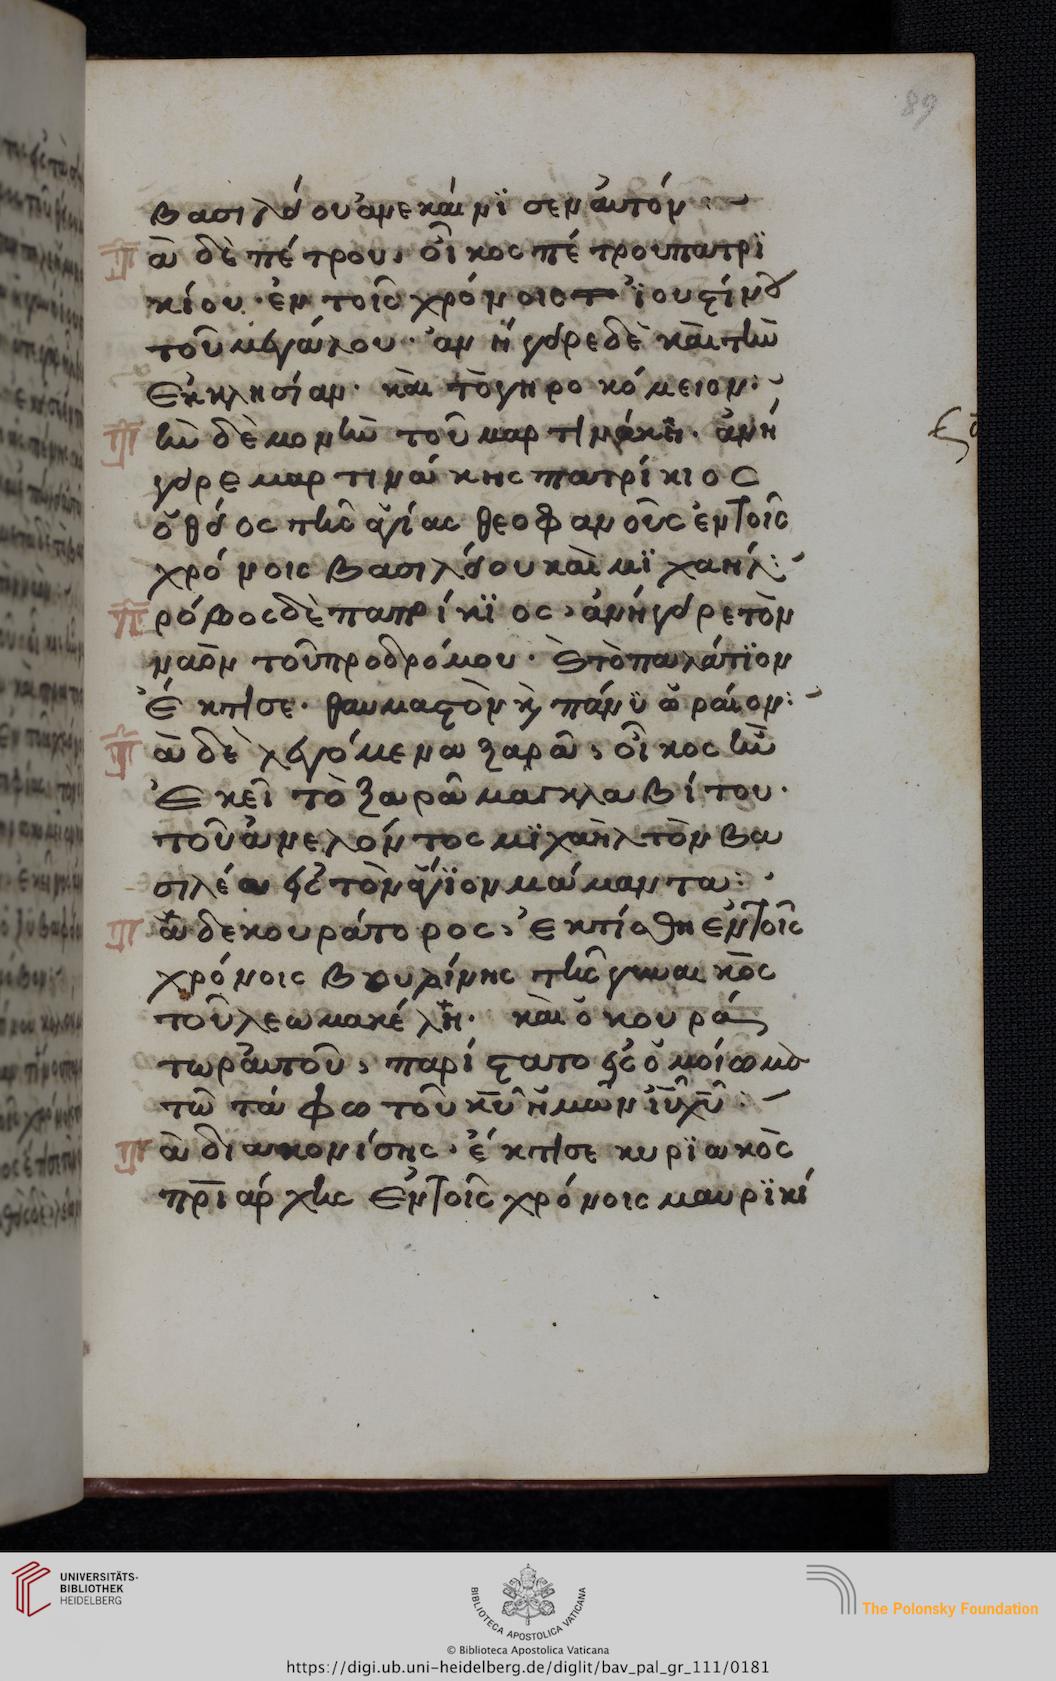 89
βασιλείου ἀνεκαίνϊσεν ἀυτόν:
Τὰ δὲ πέτρου, οἶκος πέτρου πατρϊ
κίου. ἐν τοῖς χρόνοις ἰουστίνου
τοῦ μεγάλου. ἀνήγειρε δὲ καὶ τὴν
ἐκκλησίαν. καὶ τὸ γηροκόμειον:
Τὴν δὲ μονὴν τοῦ μαρτηνάκη. ἀνή
γειρε μαρτινάκης πατρίκιος
ὁ θεῖος τῆς ἁγίας θεοφανοῦς ἐν τοῖς
χρόνοις βασιλείου καὶ μϊχαήλ:
Πρόβος δὲ πατρίκϊος, ἀνήγειρε τὸν
ναὸν τοῦ προδρόμου. εἰς τὸ παλάτϊον
ἔκτησε. θαυμαστὸν καὶ πάνϋ ὡραίον:
Τὰ δὲ λεγόμενα ζαρᾶ, οἶκος ἦν
ἐκεῖ τὸ ζαρᾶ μαγκλαβίτου.
τοῦ ἀνελόντος μϊχαὴλ τὸν βα
σιλέα εἰς τὸν ἅγϊον μάμαντα:
Τὰ δε κουράτορος, ἐκτίσθη ἐν τοῖς
χρόνοις βουρίνης τῆς γυναικὸς
τοῦ λεωμακέλη. καὶ ὁ κουρά
τωρ ἀυτοῦ, παρίστατο εἰς ὁμοίωμα
τῶ τάφω τοῦ κυ ἡμῶν ἰυ χυ:
Τὰ διακονίσης. ἔκτησε κυρϊακὸς
πρϊάρχης ἐν τοῖς χρόνοις μαυρϊκί
UNIVERSITÄTS-
BIBLIOTHEK
HEIDELBERG
BIBLIOTECA APOSTOLICA VATICANA
The Polonsky Foundation
© Biblioteca Apostolica Vaticana
https://digi.ub.uni-heidelberg.de/diglit/bav_pal_gr_111/0181